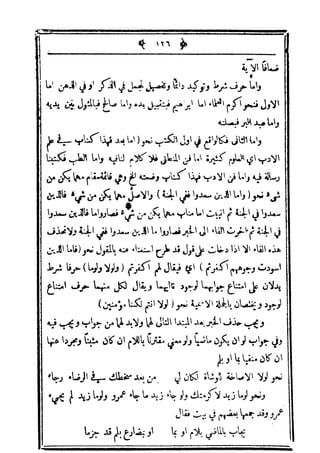 ﴿ ١٢٦ ﴾
ضعافا الآية
واما حرف شرط وتوكيد دائما وتفصيل لجمل فى الذكر او فى الذهن اما
الاول فنحو اكرم العلماء اما ابراهيم فبتقبيل يده واما صالح فبالمثول بين يديه
واما عبد البر فبصلته
واما الثانى فكالواقع فى اول الكتب نحو (اما بعد فهذا كتاب فى علم
الادب اى العلوم كثيرة اما فن المنطق فلا كلام لنا فيه واما الطب فكتبنا
رسالة فيه واما فن الادب فهذا كتاب وضعته الخ وهى قائمة مقام مهما يكن من
شىء نحو (واما الذين سعدوا ففى الجنة) والاصل مهما يكن من شىء فالذين
سعدوا فى الجنة ثم انيبت اما مناب مهما يكن من شىء فصار واما فالذين سعدوا
فى الجنة ثم اخرت الفاء الى الخبر فصار واما الذين سعدوا ففى الجنة ولا تحذف
هذه الفاء الا اذا دخلت على قول قد طرح استغناء عنه بالمقول نحو (فاما الذين
اسودت وجوههم اكفرتم) اى فيقال لهم اكفرتم (ولولا ولوما) حرفا شرط
يدلان على امتناع جوابهما لوجود تاليهما ويقال لكل منهما حرف امتناع
لوجود ويختصان بالجملة الاسمية نحو (لولا انتم لكنا مؤمنين)
ويجب حذف الخبر بعد المبتدا التالى لهما ولابد لهما من جواب ويجب فيه
وفى جواب لو ان يكون ماضيا ولو معنى مقترنا باللام ان كان مثبتا ومجردا عنها
ان كان منفيا بما او بلم
نحو لولا الاصاخة لوشاة لكان لى من بعد سخطك فى الرضاء رجاء
ونحو لوما زيد لاكرمتك ولو جاء زيد ما جاء عمرو ولوما زيد لم يجىء
عمرو وقد جمعها بعضهم فى بيت فقال
يجاب بالماضى بلام او بما او بمضارع بلم قد جزما